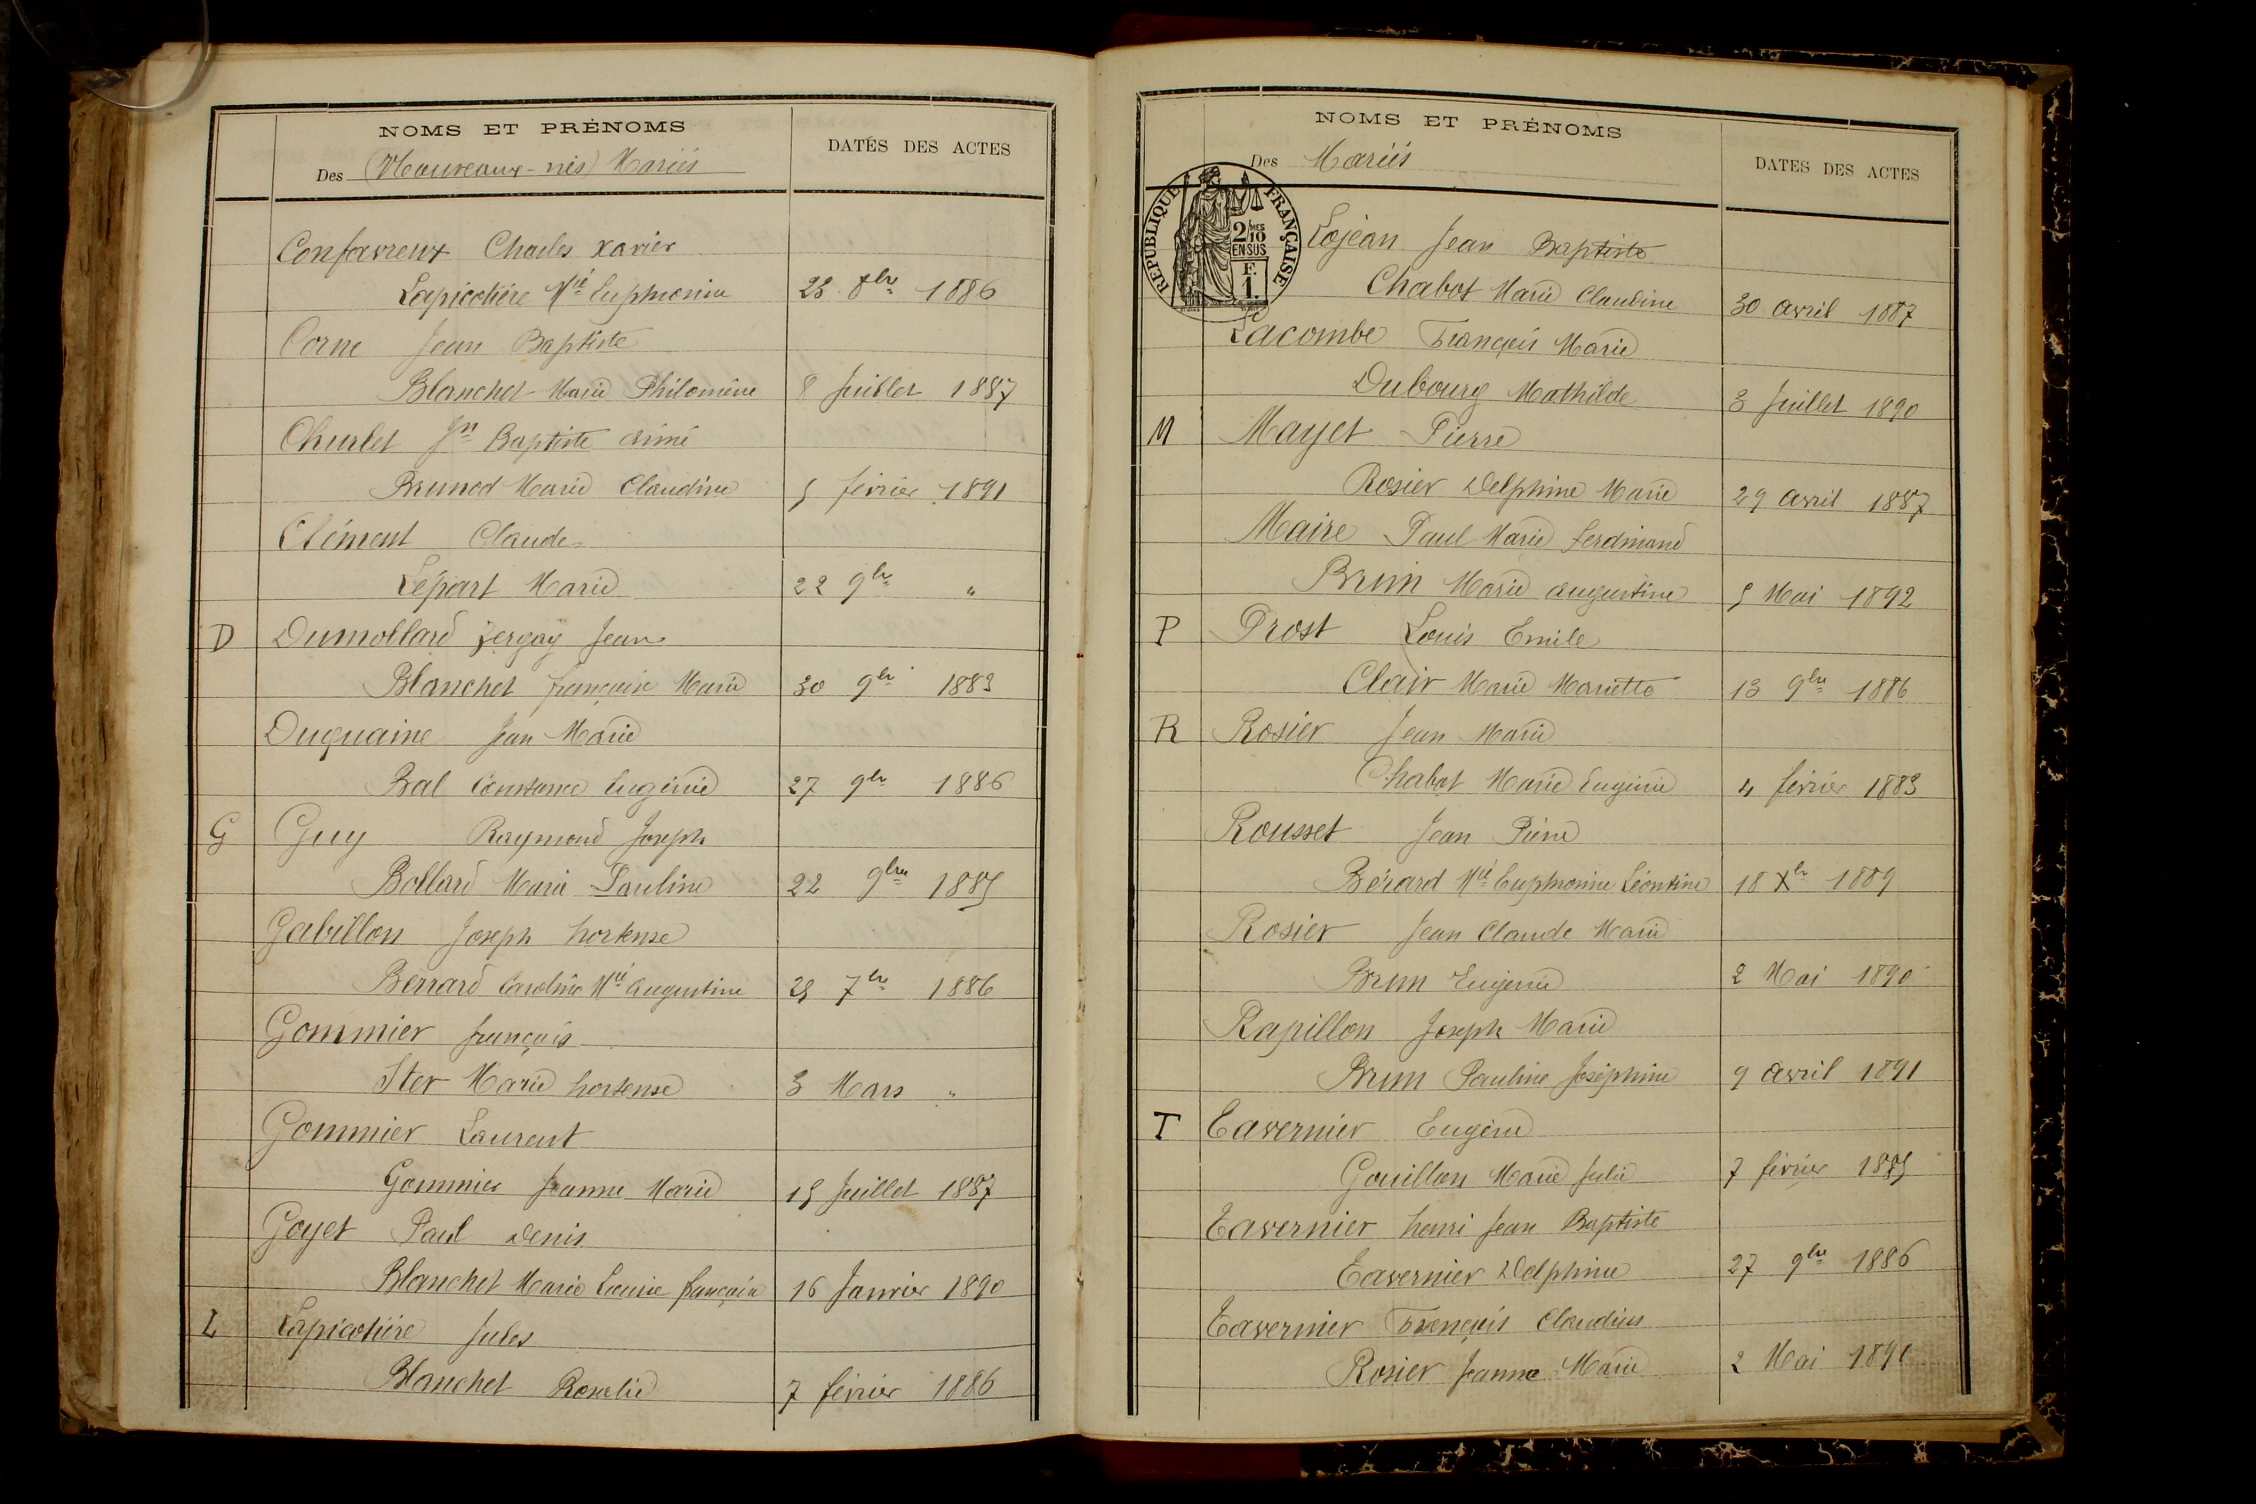 NOMS ET PRÉNOMS
DATES DES ACTES
Des (Nouveaux-nés) Mariés
Confavreux Charles Xavier
Lapicotière Mie Euphrosine 28 8bre 1886
Corne Jean Baptiste
Blanchet Marie Philomène 8 Juillet 1887
Churlet Jn Baptiste Aimé
Brunod Marie Claudine 5 février 1891
Clément Claude
Lépart Marie 22 9bre "
D Dumollard Jean
Blanchet françoise Marie 30 9bre 1883
Duquaine Jean Marie
Bal Constance Eugénie 27 9bre 1886
G Guy Raymond Joseph
Bollard Marie Pauline 22 9bre 1885
Gabillon Joseph hortense
Berrard Caroline Mie Augustine 25 7bre 1886
Gommier françois
Ster Marie hortense 3 Mars "
Gommier Laurent
Gommier Jeanne Marie 15 Juillet 1887
Goyet Paul Denis
Blanchet Marie Louise françoise 16 Janvier 1890
L Lapicotière Jules
Blanchet Rosalie 7 février 1886
NOMS ET PRÉNOMS
DATES DES ACTES
Des Mariés
RÉPUBLIQUE FRANÇAISE
2/10 MES
EN SUS
F.
1.
Lojean Jean Baptiste
Chabot Marie Claudine 30 avril 1887
Lacombe François Marie
Dubourg Mathilde 3 Juillet 1890
M Mayet Pierre
Rosier Delphine Marie 29 avril 1887
Maire Paul Marie ferdinand
Brun Marie augustine 5 Mai 1892
P Prost Louis Emile
Clair Marie Mariette 13 9bre 1886
R Rosier Jean Marie
Chabot Marie Eugénie 4 février 1883
Rousset Jean Pierre
Bérard Mie Euphrosine Léontine 18 Xbre 1889
Rosier Jean Claude Marie
Brun Eugénie 2 Mai 1890
Rapillon Joseph Marie
Brun Pauline Joséphine 9 avril 1891
T Tavernier Eugène
Gouillon Marie Julie 7 février 1885
Tavernier henri Jean Baptiste
Tavernier Delphine 27 9bre 1886
Tavernier François Claudius
Rosier Jeanne Marie 2 Mai 1891